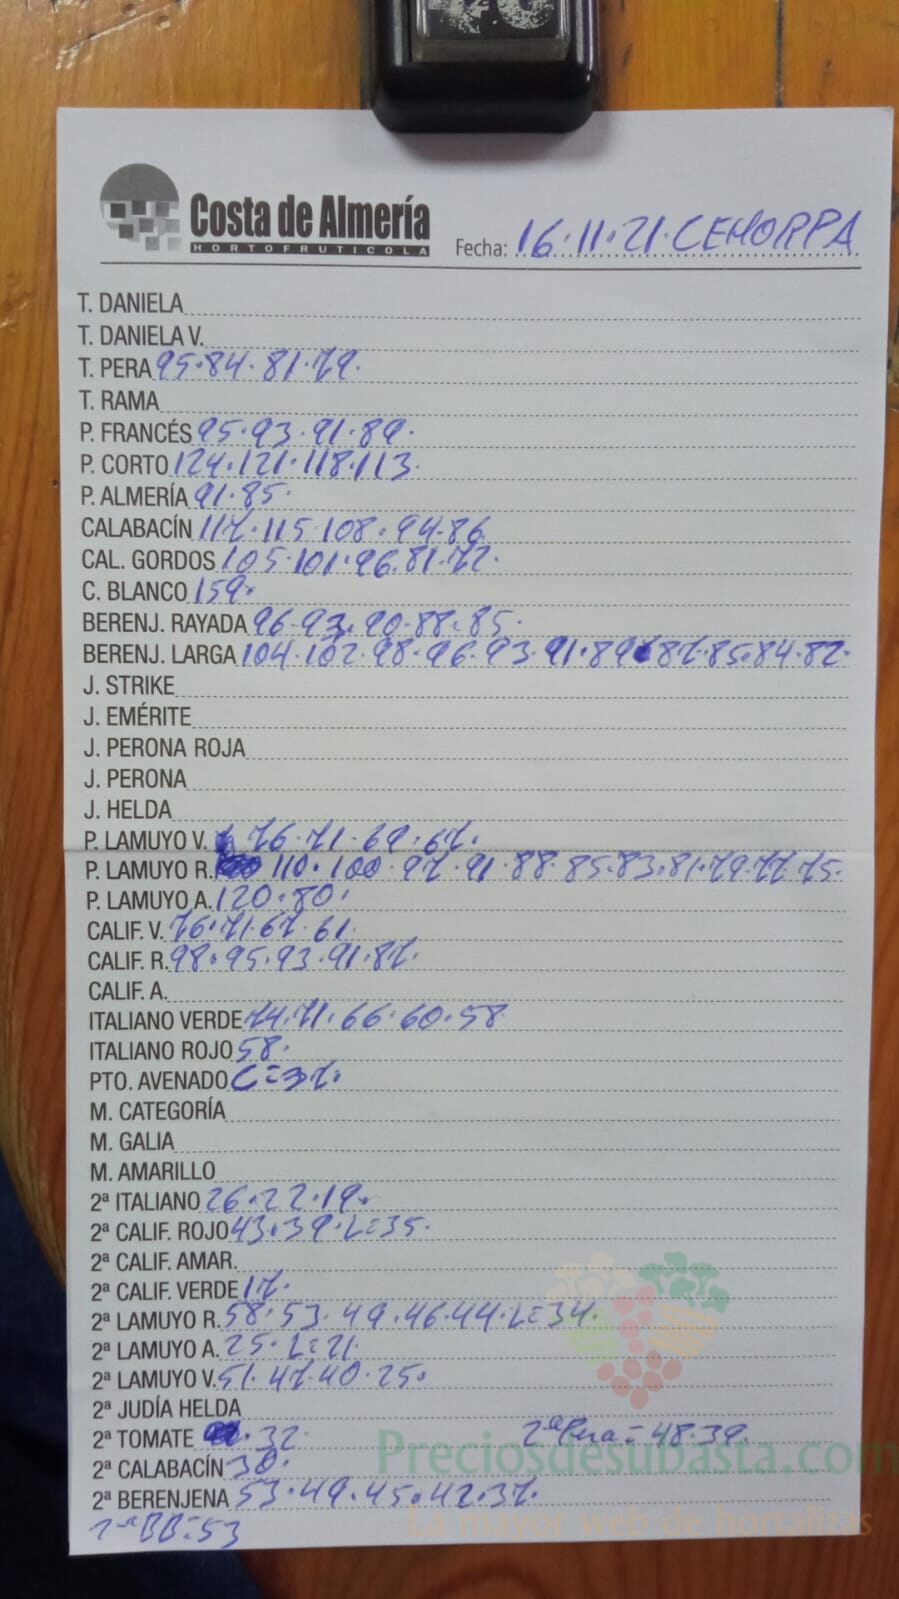 Costa de Almería
HORTOFRUTICOLA
Fecha: 16·11·21·CEHORPPA
T. DANIELA
T. DANIELA V.
T. PERA 95·84·81·79·
T. RAMA
P. FRANCÉS 95·93·91·89·
P. CORTO 124·121·118·113·
P. ALMERÍA 91·85·
CALABACÍN 117·115·108·94·86
CAL. GORDOS 105·101·96·81·72·
C. BLANCO 159·
BERENJ. RAYADA 96·93·90·88·85·
BERENJ. LARGA 104·102·98·96·93·91·89·87·85·84·82·
J. STRIKE
J. EMÉRITE
J. PERONA ROJA
J. PERONA
J. HELDA
P. LAMUYO V. 76·71·69·67·
P. LAMUYO R. 110·100·97·91·88·85·83·81·79·77·75·
P. LAMUYO A. 120·80·
CALIF. V. 76·71·67·61·
CALIF. R. 98·95·93·91·87·
CALIF. A.
ITALIANO VERDE 74·71·66·60·58
ITALIANO ROJO 58·
PTO. AVENADO C=37·
M. CATEGORÍA
M. GALIA
M. AMARILLO
2ª ITALIANO 26·22·19·
2ª CALIF. ROJO 43·39·L=35·
2ª CALIF. AMAR.
2ª CALIF. VERDE 17·
2ª LAMUYO R. 58·53·49·46·44·L=34·
2ª LAMUYO A. 25·L=21·
2ª LAMUYO V. 51·47·40·25·
2ª JUDÍA HELDA
2ª TOMATE 32· 2ª Pera=48·39·
Preciosdesubasta.com
2ª CALABACÍN 30·
2ª BERENJENA 53·49·45·42·37·
La mayor web de hortalizas
2ª BB=53